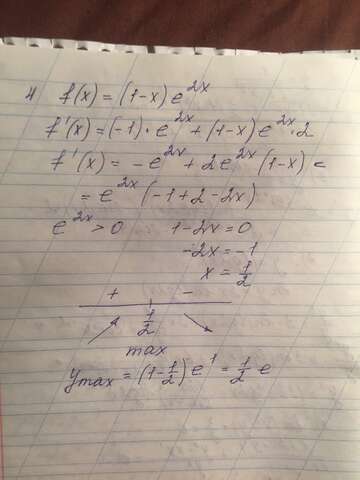 4 f(x) = (1-x) e^{2x}
f'(x) = (-1) · e^{2x} + (1-x) e^{2x} · 2
f'(x) = -e^{2x} + 2e^{2x} (1-x) =
= e^{2x} (-1+2-2x)
e^{2x} > 0 1-2x=0
-2x=-1
x = 1/2
+ -
1/2
max
y_{max} = (1-1/2) e^1 = 1/2 e